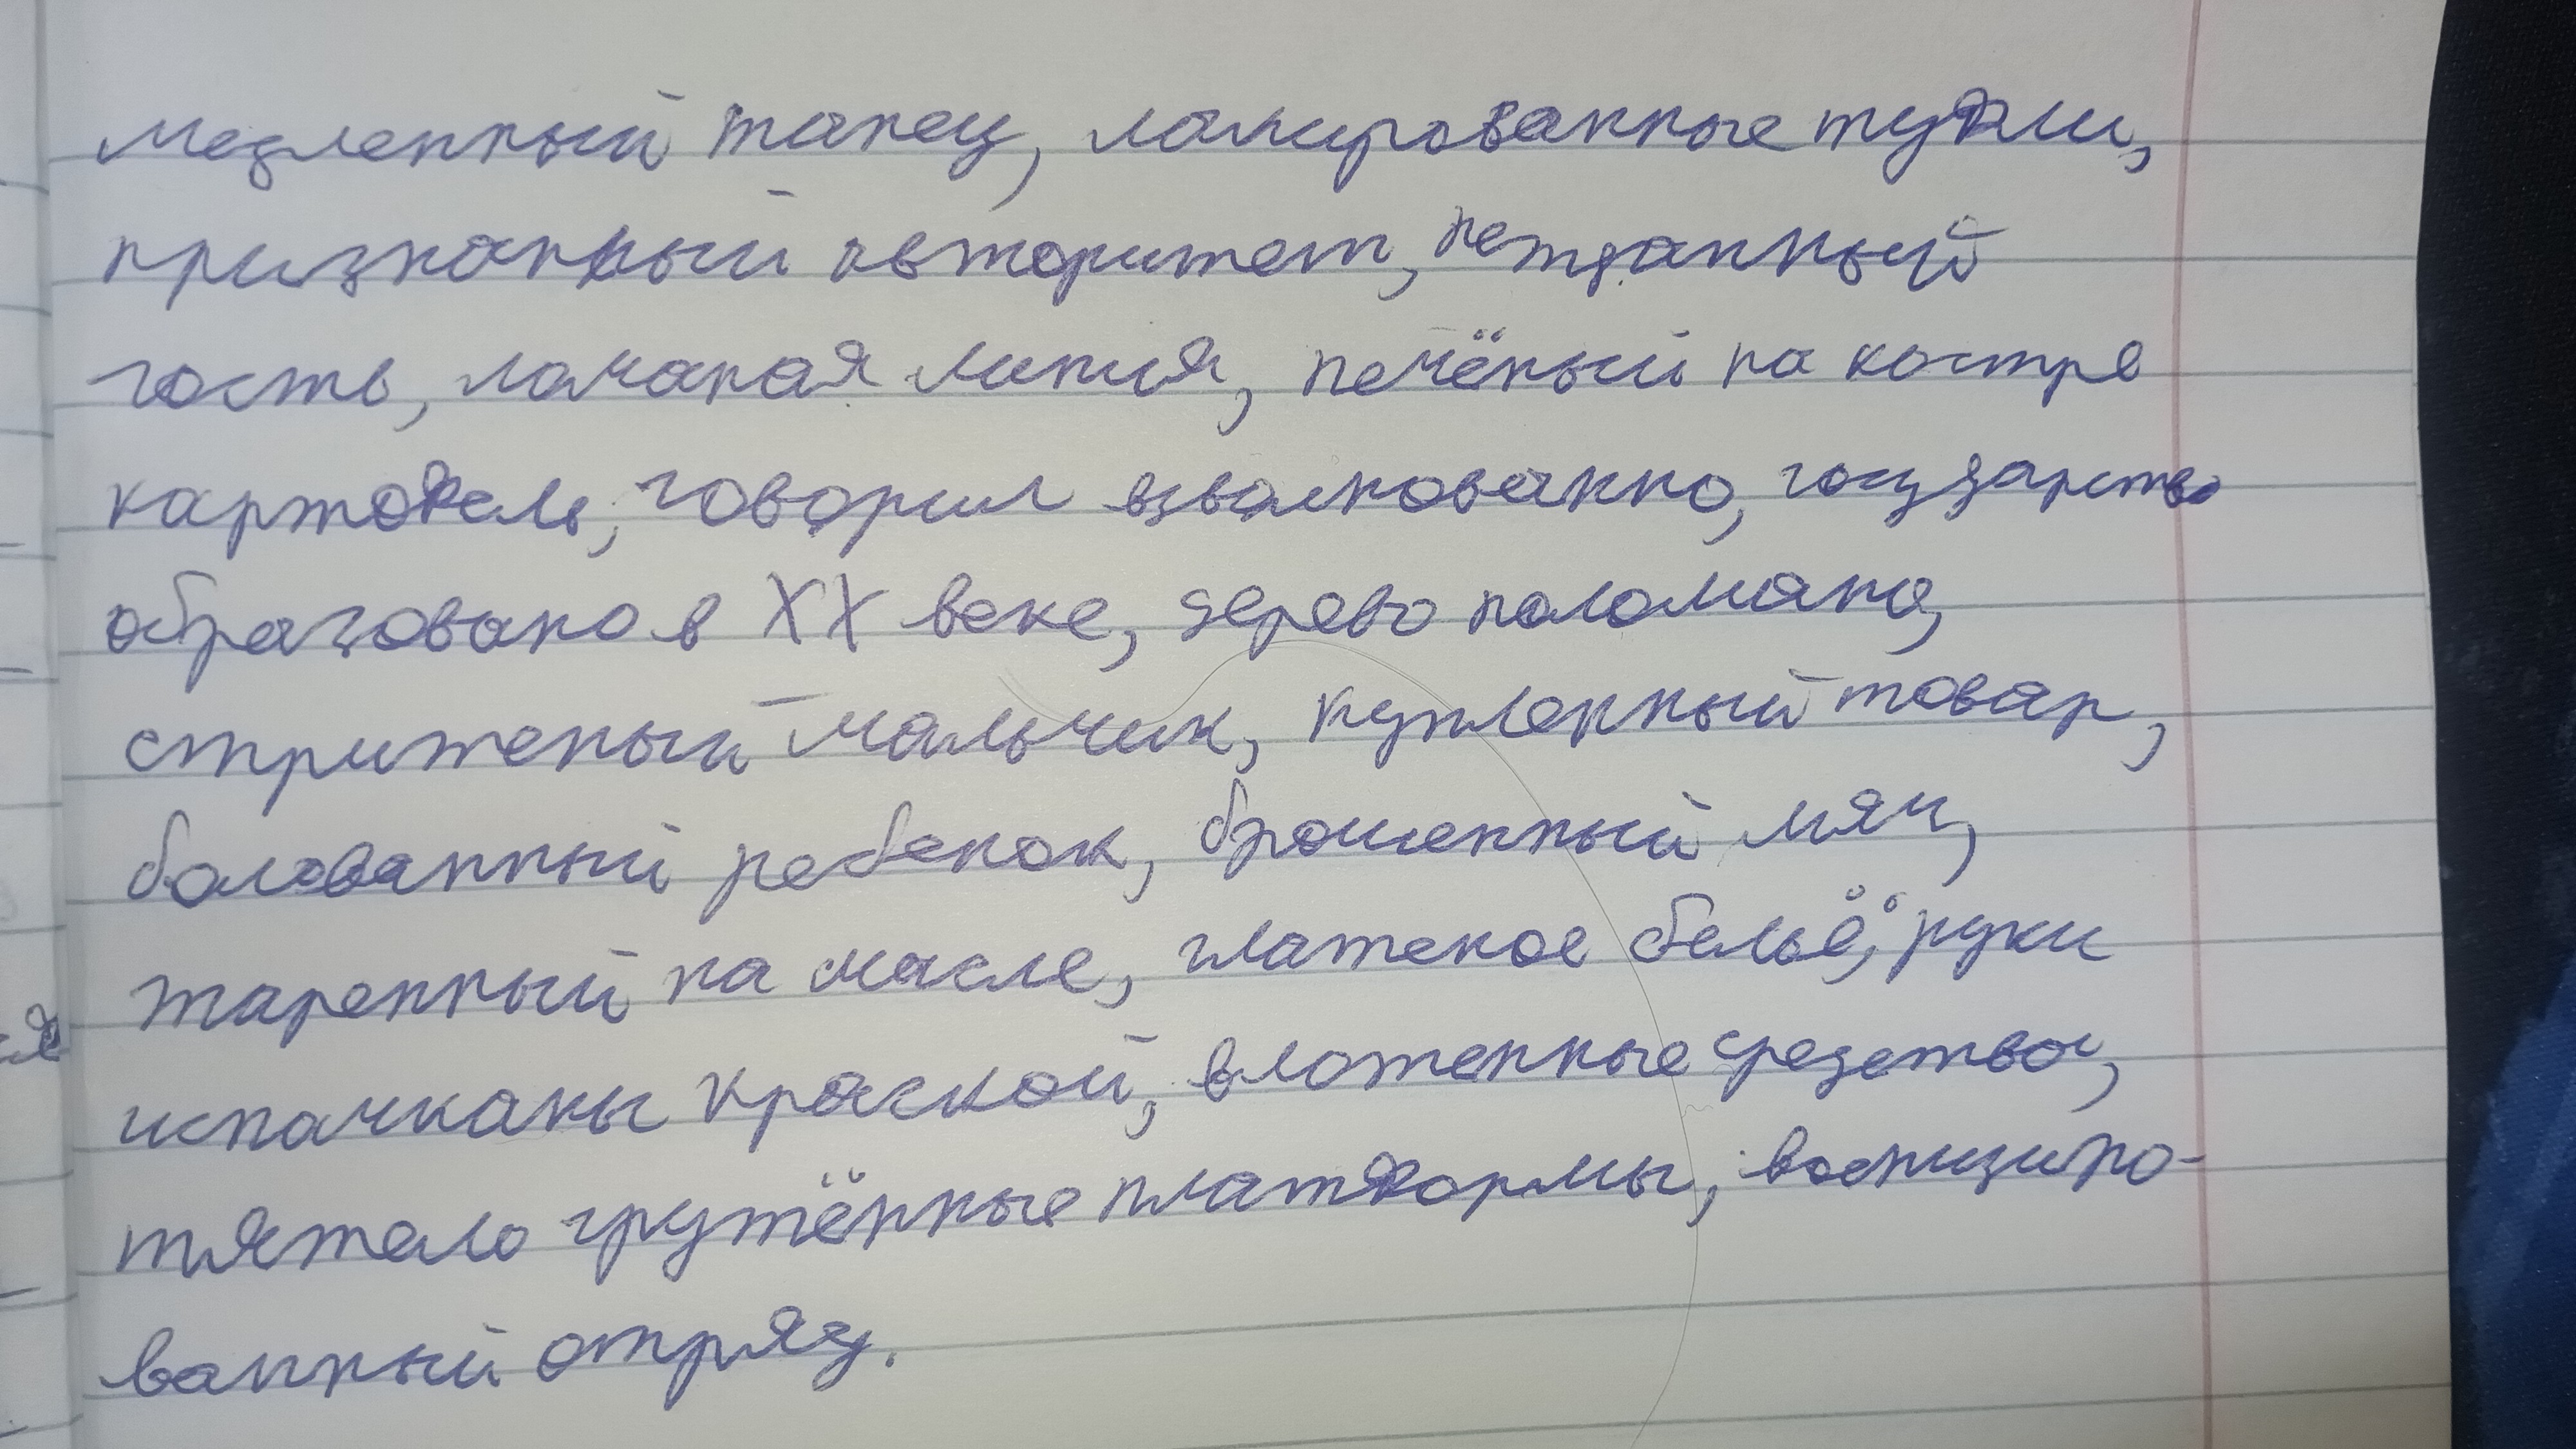 медленный танец, лакированные туфли,
признанный авторитет, нежданный
гость, ломаная линия, печёный на костре
картофель, говорил взволнованно, государство
образовано в XX веке, дерево поломано,
стриженый мальчик, купленный товар,
балованный ребенок, брошенный мяч,
жаренный на масле, глаженое бельё, руки
испачканы краской, вложенные средства,
тяжело гружённые платформы,
ванный отряд.